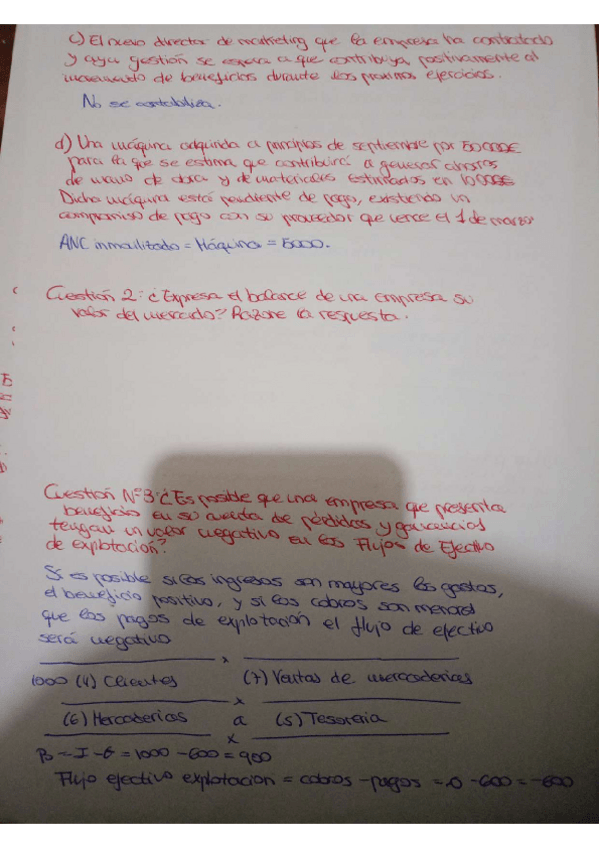 c) El nuevo director de marketing que la empresa ha contratado
y cuya gestión se espera a que contribuya positivamente al
incremento de beneficios durante los proximos ejercicios.
No se contabiliza.
d) Una máquina adquirida a principios de septiembre por 50000€
para la que se estima que contribuirá a generar ahorros
de mano de obra y de materiales estimados en 10000€
Dicha máquina está pendiente de pago, existiendo un
compromiso de pago con su proveedor que vence el 1 de marzo
ANC inmovilizado = Máquina = 5000.
Cuestión 2: ¿Expresa el balance de una empresa su
valor del mercado? Razone la respuesta.
Cuestión Nº3: ¿Es posible que una empresa que presenta
beneficio en su cuenta de pérdidas y ganancias
tengan un valor negativo en los Flujos de Efectivo
de explotación?
Sí es posible si los ingresos son mayores los gastos,
el beneficio positivo, y si los cobros son menores
que los pagos de explotación el flujo de efectivo
será negativo
x
1000 (4) Clientes (7) Ventas de mercaderias
x
(6) Mercaderias a (5) Tesoreria
x
B = I - G = 1000 - 600 = 900
Flujo efectivo explotacion = cobros - pagos = 0 - 600 = -600